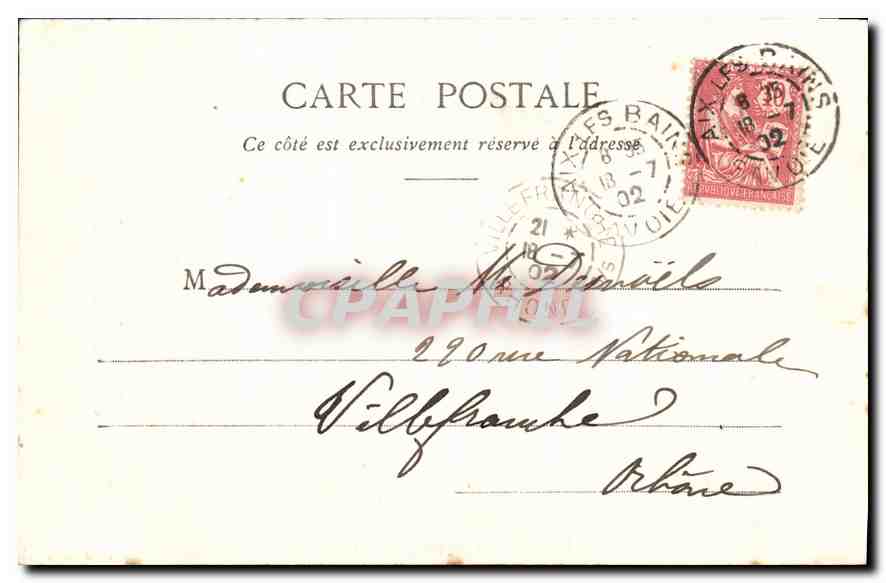 CARTE POSTALE
Ce côté est exclusivement réservé à l'adresse
AIX-LES-BAINS
8 35
18 - 7
02
SAVOIE
10
RÉPUBLIQUE FRANÇAISE
AIX-LES-BAINS
8 35
18 - 7
02
SAVOIE
VILLEFRANCHE S SAONE
21 *
18 - 7
02
RHONE
Mademoiselle M.
CPAPHIL
220 rue Nationale
Villefranche
Rhône